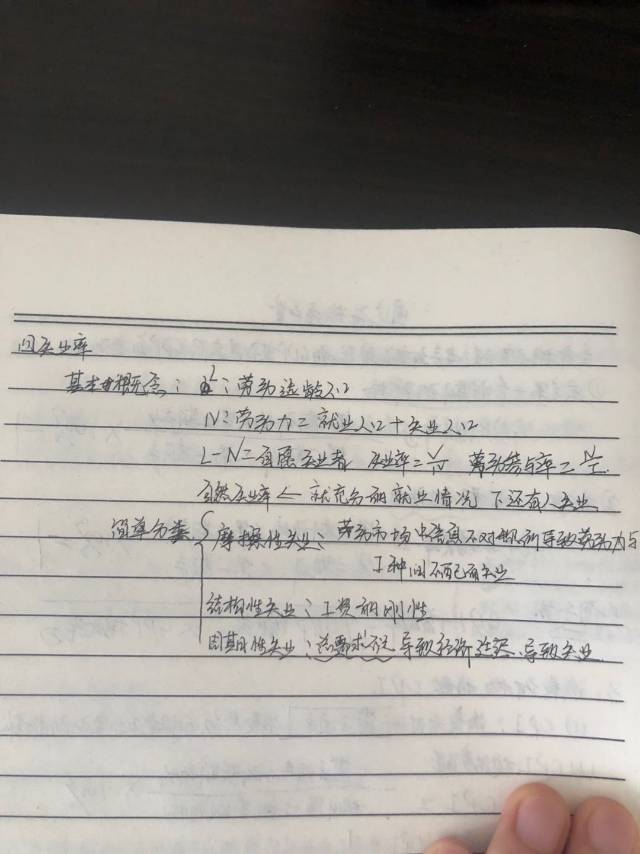 四失业率
基本概念：L：劳动适龄人口
N：劳动力=就业人口+失业人口
L-N=自愿失业者 失业率=U/N 劳动参与率=N/L
自然失业率← 就充分的就业情况下还有人失业
简单分类 摩擦性失业：劳动市场中信息不对称所导致劳动力与
工种间不匹配而失业
结构性失业：工资的刚性
周期性失业：总需求不足导致经济 导致失业